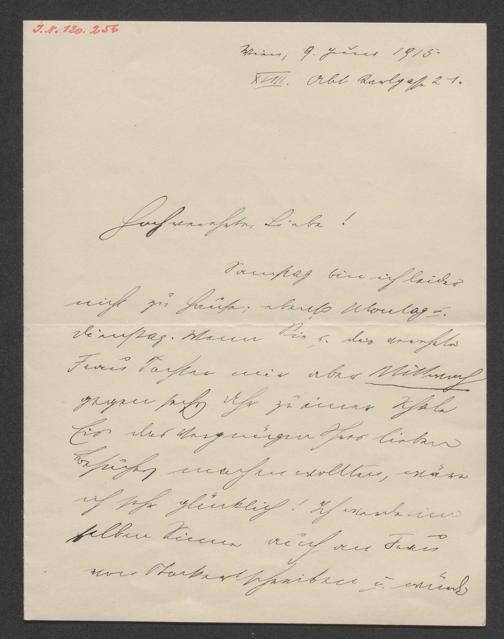 I.N. 120.256
Wien, 9. Juni 1915
XVIII. Abt Karlgasse 21.
Hochverehrte, Liebe!
Samstag bin ich leider
nicht zu Hause; ebenso Montag u.
Dienstag. Wenn Sie u. das verehrte
Frau Tochter mir aber Mittwoch
gegen sechs Uhr zu einer Schale
Eis das Vergnügen Ihres lieben
Besuches machen wollten, wäre
ich sehr glücklich! Ich werde im
selben Sinne auch an Frau
von schreiben u. würde